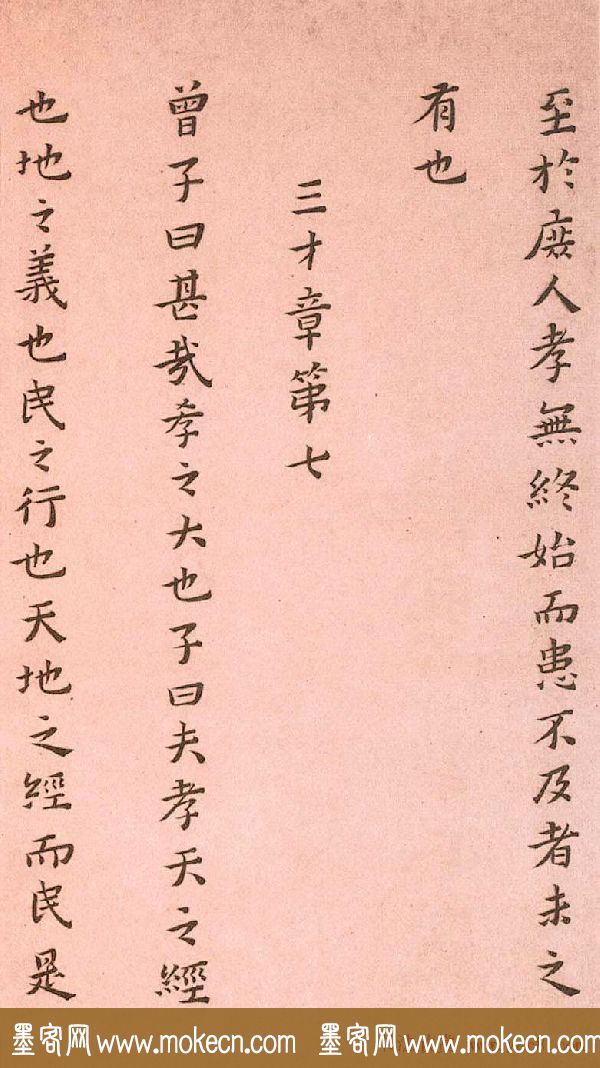 至於庶人孝無終始而患不及者未之
有也
三才章第七
曾子曰甚哉孝之大也子曰夫孝天之經
也地之義也民之行也天地之經而民是
墨客网 www.mokecn.com 墨客网 www.mokecn.com